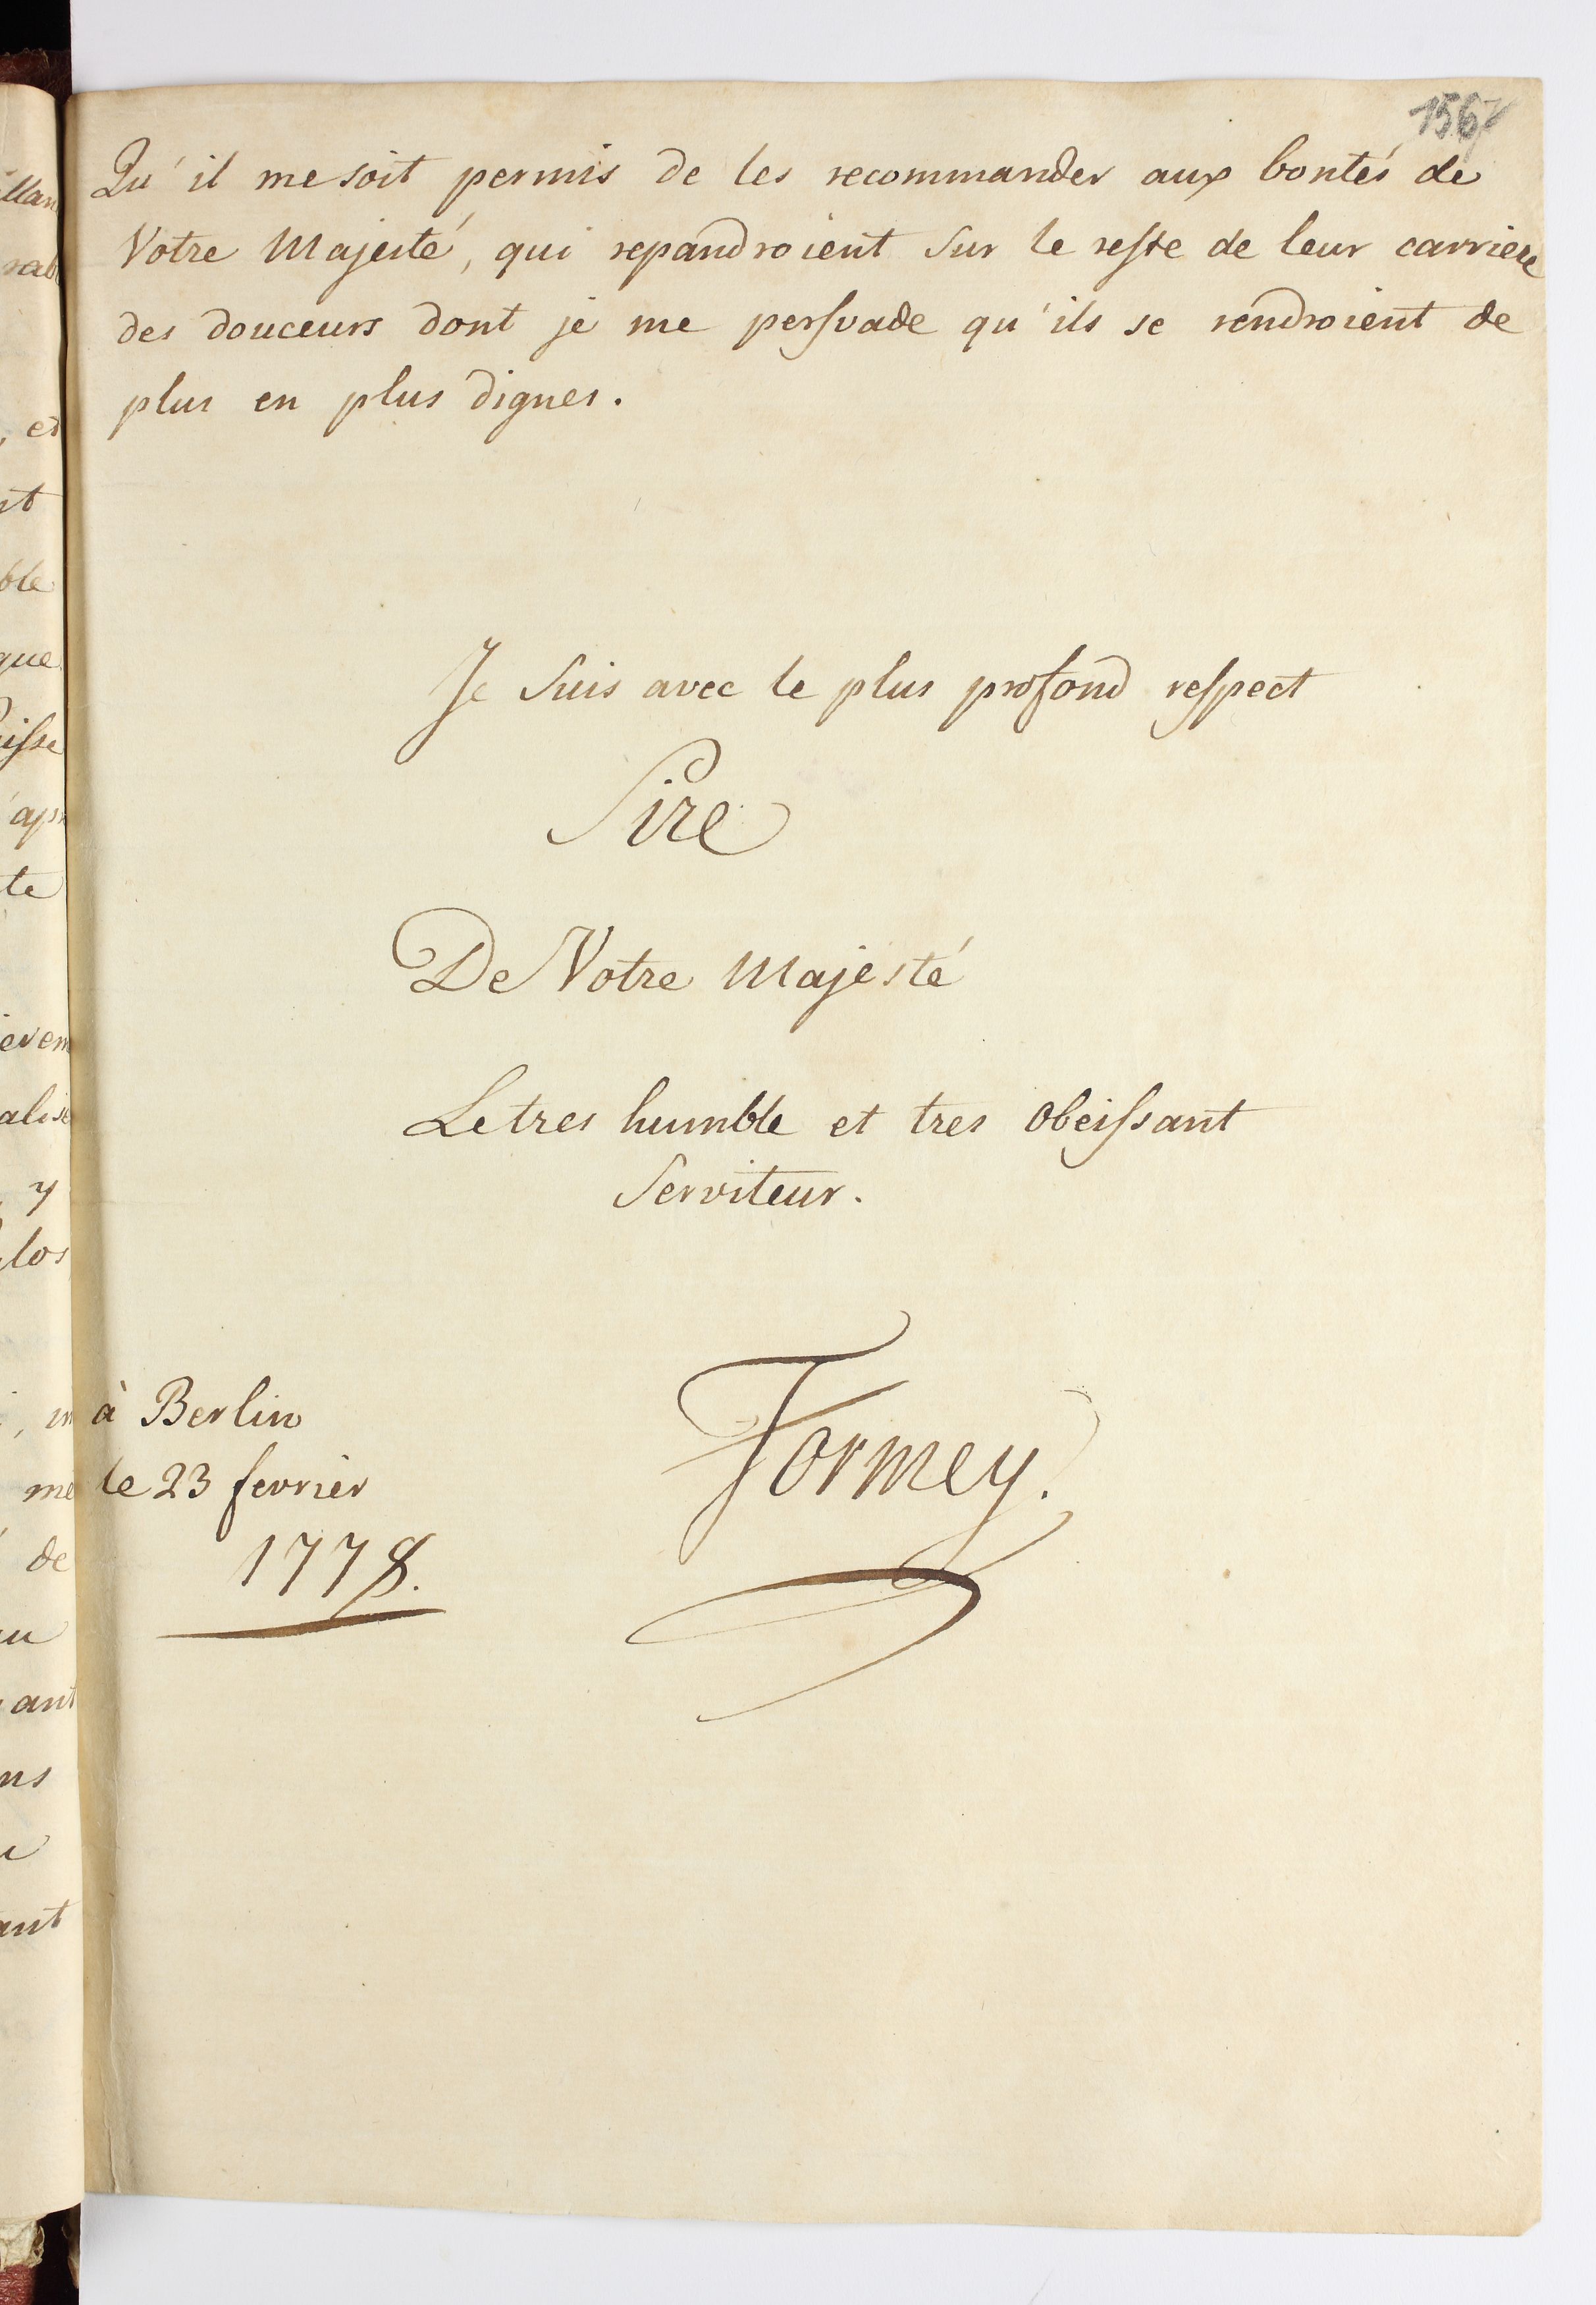 156
Qu'il me soit permis de les recommander aux bontés de
Votre Majesté, qui repandroient sur le reste de leur carriere
des douceurs dont je me persuade qu'ils se rendroient de
plus en plus dignes.
Je suis avec le plus profond respect
Sire
De Votre Majesté
Le tres humble et tres obeissant
Serviteur.
à Berlin
le 23 fevrier
1778.
Formey.